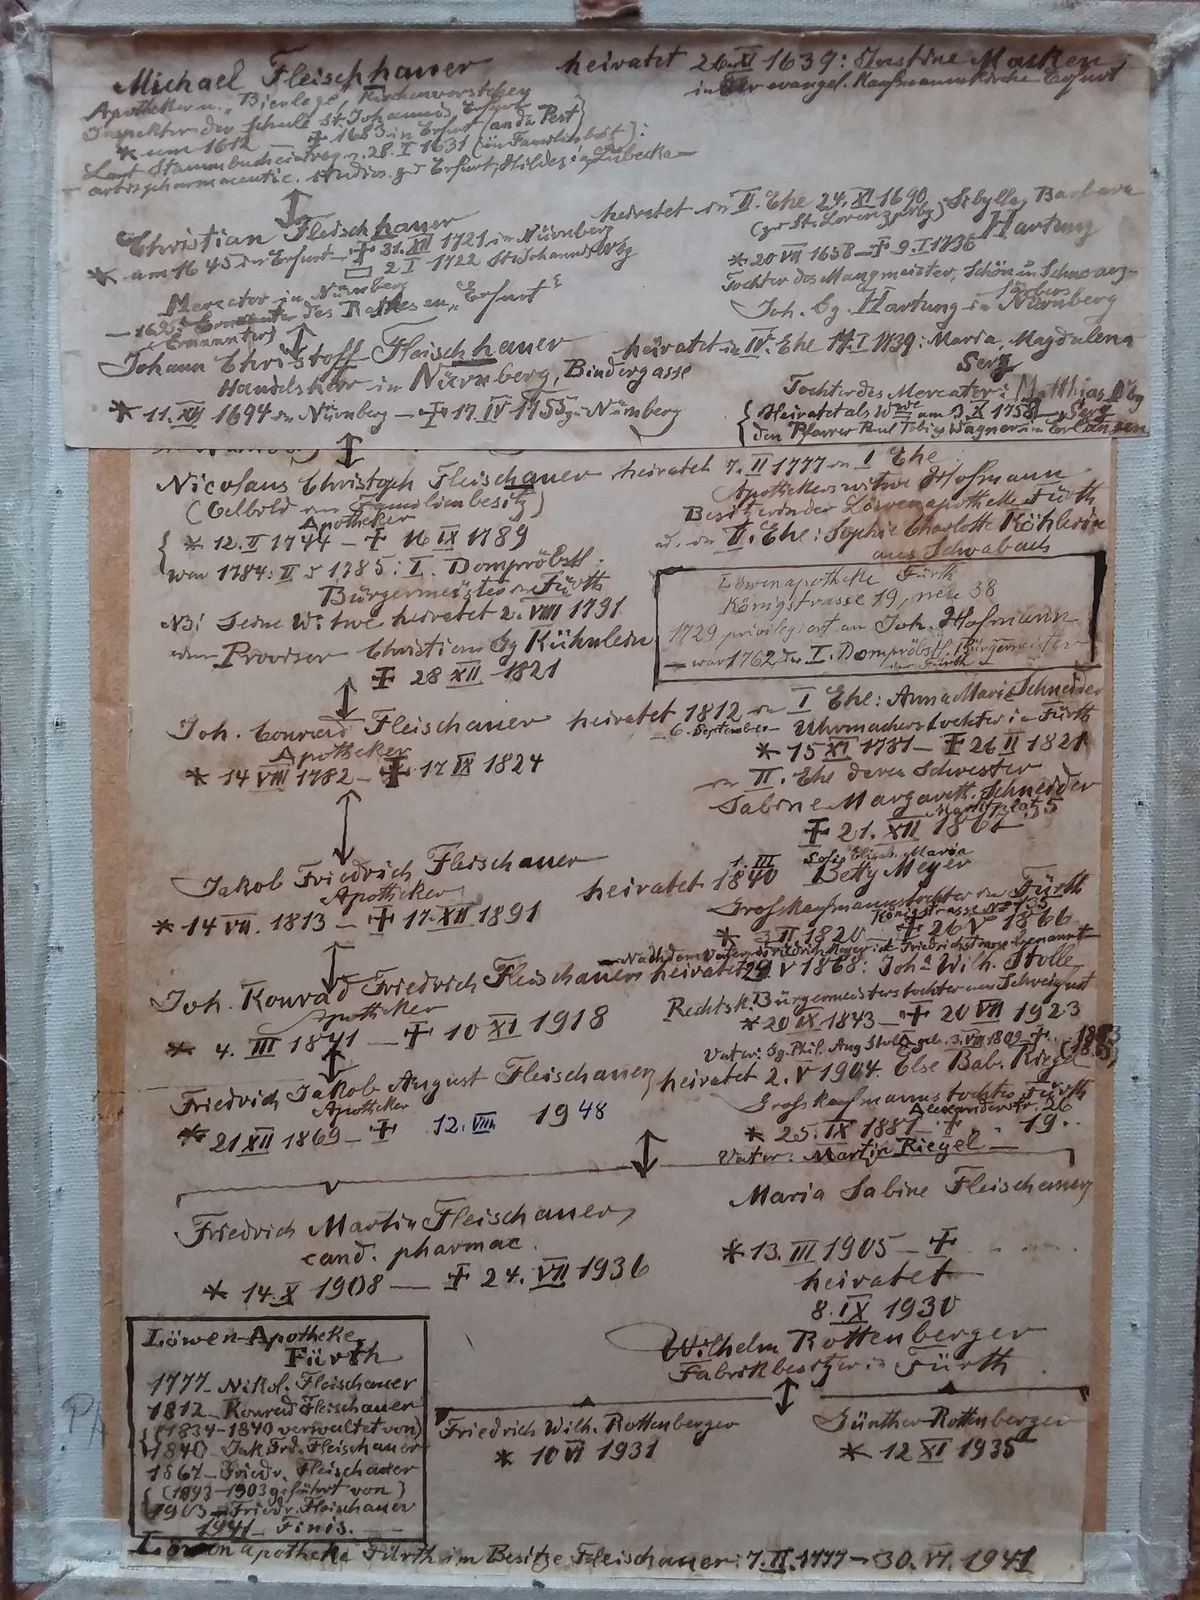 Michael Fleischhauer heiratet 26. XI 1639: Justine Marken
in der evangel. Kaufmannskirche Erfurt
Apotheker u. "Bierlege", Kirchenvorsteher
Inspektor der Schule St. Johannis Erfurt
* um 1612 ✝ 1683 in Erfurt (an da Pest)
Laut Stammbucheintrag v. 28. I 1631 (in Familienbesitz):
artis pharmaceutic. studios.
Christian Fleischhauer heiratet in II. Ehe 24. XI 1690 Sibylle, Barbara
(zu St. Lorenz, Nbg) Hartung
* am 1645 in Erfurt - ✝ 31. XII 1721 in Nürnberg
2. I 1722 St. Johannis Nbg
* 20 VII 1658 - ✝ 9. I 1736
Tochter des Mangmeister, Schön u. Schwarz-
färbers
Joh. Gg. Hartung in Nürnberg
Mercator in Nürnberg
- 1695 des Rates en "Erfurt"
(Ernannter)
Johann Christoff Fleischhauer heiratet in IV. Ehe 14. I 1739: Maria, Magdalena
Serz
Handelsherr in Nürnberg, Bindergasse
Tochter des Mercator: Matthias Nbg
Serz
* 11. XI 1694 in Nürnberg - ✝ 17. IV 1755 zu Nürnberg
{ Heiratet als Wwe am 3. X 1758
den Pfarrer Paul Tobias Wagner in Erlangen
Nicolaus Christoph Fleischauer heiratet 7. II 1777 in I Ehe
(Oelbild in Familienbesitz)
Apotheker
Apothekerswitwe Hofmann
Besitzerin der Löwenapotheke Fürth
u. in II. Ehe: Sophie Charlotte Köhlerin
aus Schwabach
{ * 12. II 1744 - ✝ 16 IX 1789
war 1784: II u 1785: I. Dompröbstl.
Bürgermeister in Fürth
NB: Seine Witwe heiratet 2. VIII 1791
den Provisor Christian Gg Kühnlein
✝ 28 XII 1821
Löwenapotheke Fürth
Königstrasse 19, neu 38
1729 privilegiert an Joh. Hofmann
- war 1762 der I. Dompröbstl. Bürgermeister
in Fürth -
Joh. Conrad Fleischauer heiratet 1812 in I Ehe: Anna Maria Schneider
- 6. September - Uhrmacherstochter in Fürth
Apotheker
* 14 VIII 1782 - ✝ 17 IX 1824
* 15 XI 1781 - ✝ 26 II 1821
in II. Ehe deren Schwester
Sabine Margareth. Schneider
Marktplatz 5
✝ 21. XII 1862
Jakob Friedrich Fleischauer heiratet 1. III 1840 Sofie Elisab. Maria
Betty Meyer
Apotheker
* 14 VII. 1813 - ✝ 17. XII 1891
Grosskaufmannstochter in Fürth
Königstrasse No 135
* 3 II 1820 - ✝ 26 V 1866
- Nach dem Vater Friedrich Meyer ist Friedrichstrasse benannt -
Joh. Konrad Friedrich Fleischauer heiratet 29. V 1868: Joha Wilh. Stolle
Apotheker
* 4. III 1841 - ✝ 10 XI 1918
Rechtsk. Bürgermeisterstochter aus Schweinfurt
* 20 IX 1843 - ✝ 20 VII 1923
Vater: Gg. Phil. Aug Stolle geb. 3. VII 1809 ✝
Friedrich Jakob August Fleischauer, heiratet 2. V 1904. Else Bab. Riegel
Apotheker
* 21 XII 1869 - ✝ 12. VIII. 1948
Grosskaufmannstochter, Fürth
Alexanderstr. 26
* 25. IX 1881 - ✝ . . 19..
Vater: Martin Riegel -
Friedrich Martin Fleischauer,
cand. pharmac.
* 14. X 1908 - ✝ 24. VII 1936
Maria Sabine Fleischauer,
* 13. III 1905 - ✝
heiratet
8. IX 1930
Wilhelm Rottenberger
Fabrikbesitzer in Fürth
Friedrich Wilh. Rottenberger
* 10 VI 1931
Günther Rottenberger
* 12 XI 1935
Löwen-Apotheke
Fürth
1777 - Nikol. Fleischauer
1812 - Konrad Fleischauer
(1834-1840 verwaltet von)
1840 - Jak. Frd. Fleischauer
1867 - Friedr. Fleischauer
(1893-1903 geführt von)
1903 - Friedr. Fleischauer
1941 - Finis.
Löwenapotheke Fürth im Besitze Fleischauer: 7. II. 1777 - 30. VI. 1941